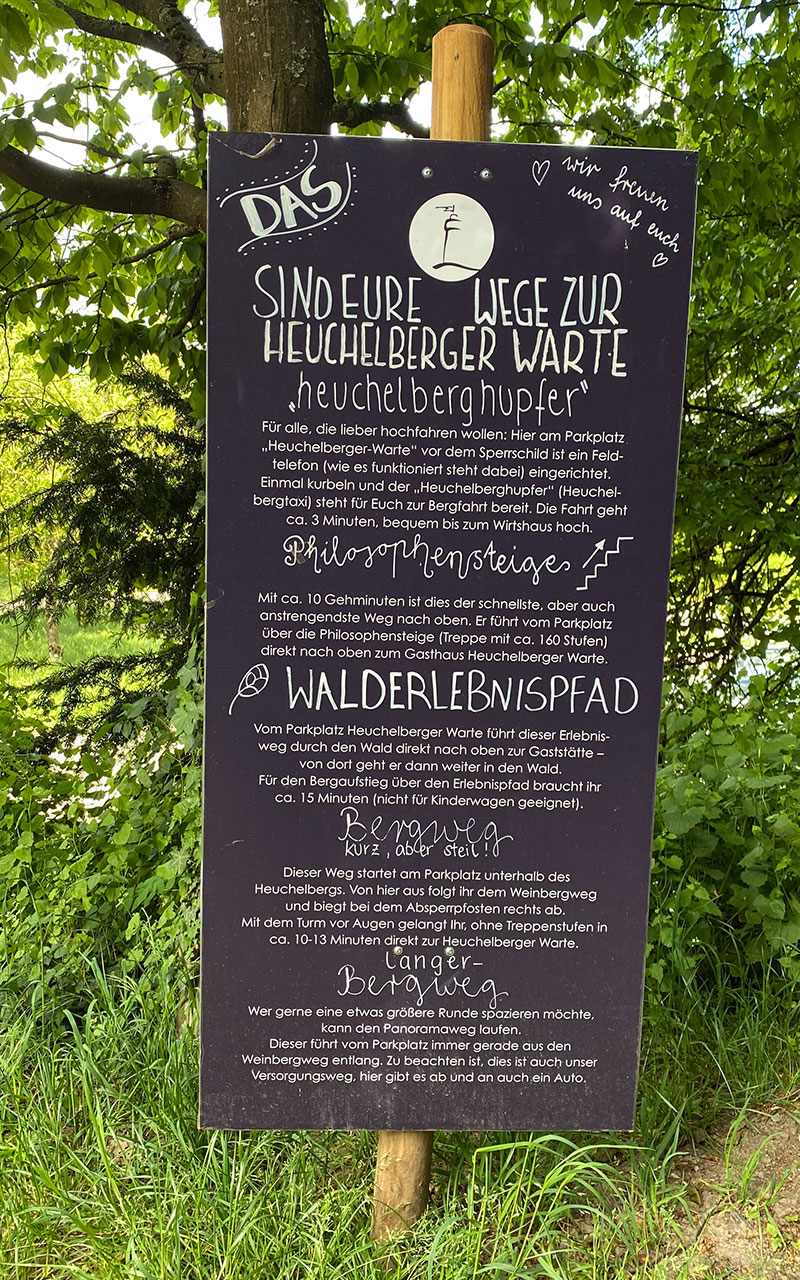 DAS
wir freuen
uns auf euch
SIND EURE WEGE ZUR
HEUCHELBERGER WARTE
„heuchelberghupfer"
Für alle, die lieber hochfahren wollen: Hier am Parkplatz
„Heuchelberger-Warte“ vor dem Sperrschild ist ein Feld-
telefon (wie es funktioniert steht dabei) eingerichtet.
Einmal kurbeln und der „Heuchelberghupfer“ (Heuchel-
bergtaxi) steht für Euch zur Bergfahrt bereit. Die Fahrt geht
ca. 3 Minuten, bequem bis zum Wirtshaus hoch.
Philosophensteige
Mit ca. 10 Gehminuten ist dies der schnellste, aber auch
anstrengendste Weg nach oben. Er führt vom Parkplatz
über die Philosophensteige (Treppe mit ca. 160 Stufen)
direkt nach oben zum Gasthaus Heuchelberger Warte.
WALDERLEBNISPFAD
Vom Parkplatz Heuchelberger Warte führt dieser Erlebnis-
weg durch den Wald direkt nach oben zur Gaststätte –
von dort geht er dann weiter in den Wald.
Für den Bergaufstieg über den Erlebnispfad braucht ihr
ca. 15 Minuten (nicht für Kinderwagen geeignet).
Bergweg
kurz, aber steil!
Dieser Weg startet am Parkplatz unterhalb des
Heuchelbergs. Von hier aus folgt ihr dem Weinbergweg
und biegt bei dem Absperrpfosten rechts ab.
Mit dem Turm vor Augen gelangt Ihr, ohne Treppenstufen in
ca. 10-13 Minuten direkt zur Heuchelberger Warte.
langer-
Bergweg
Wer gerne eine etwas größere Runde spazieren möchte,
kann den Panoramaweg laufen.
Dieser führt vom Parkplatz immer gerade aus den
Weinbergweg entlang. Zu beachten ist, dies ist auch unser
Versorgungsweg, hier gibt es ab und an auch ein Auto.